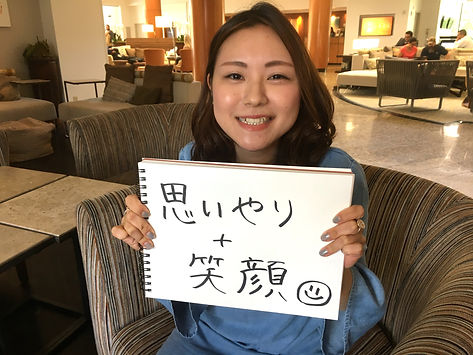 思いやり
+
笑顔☺